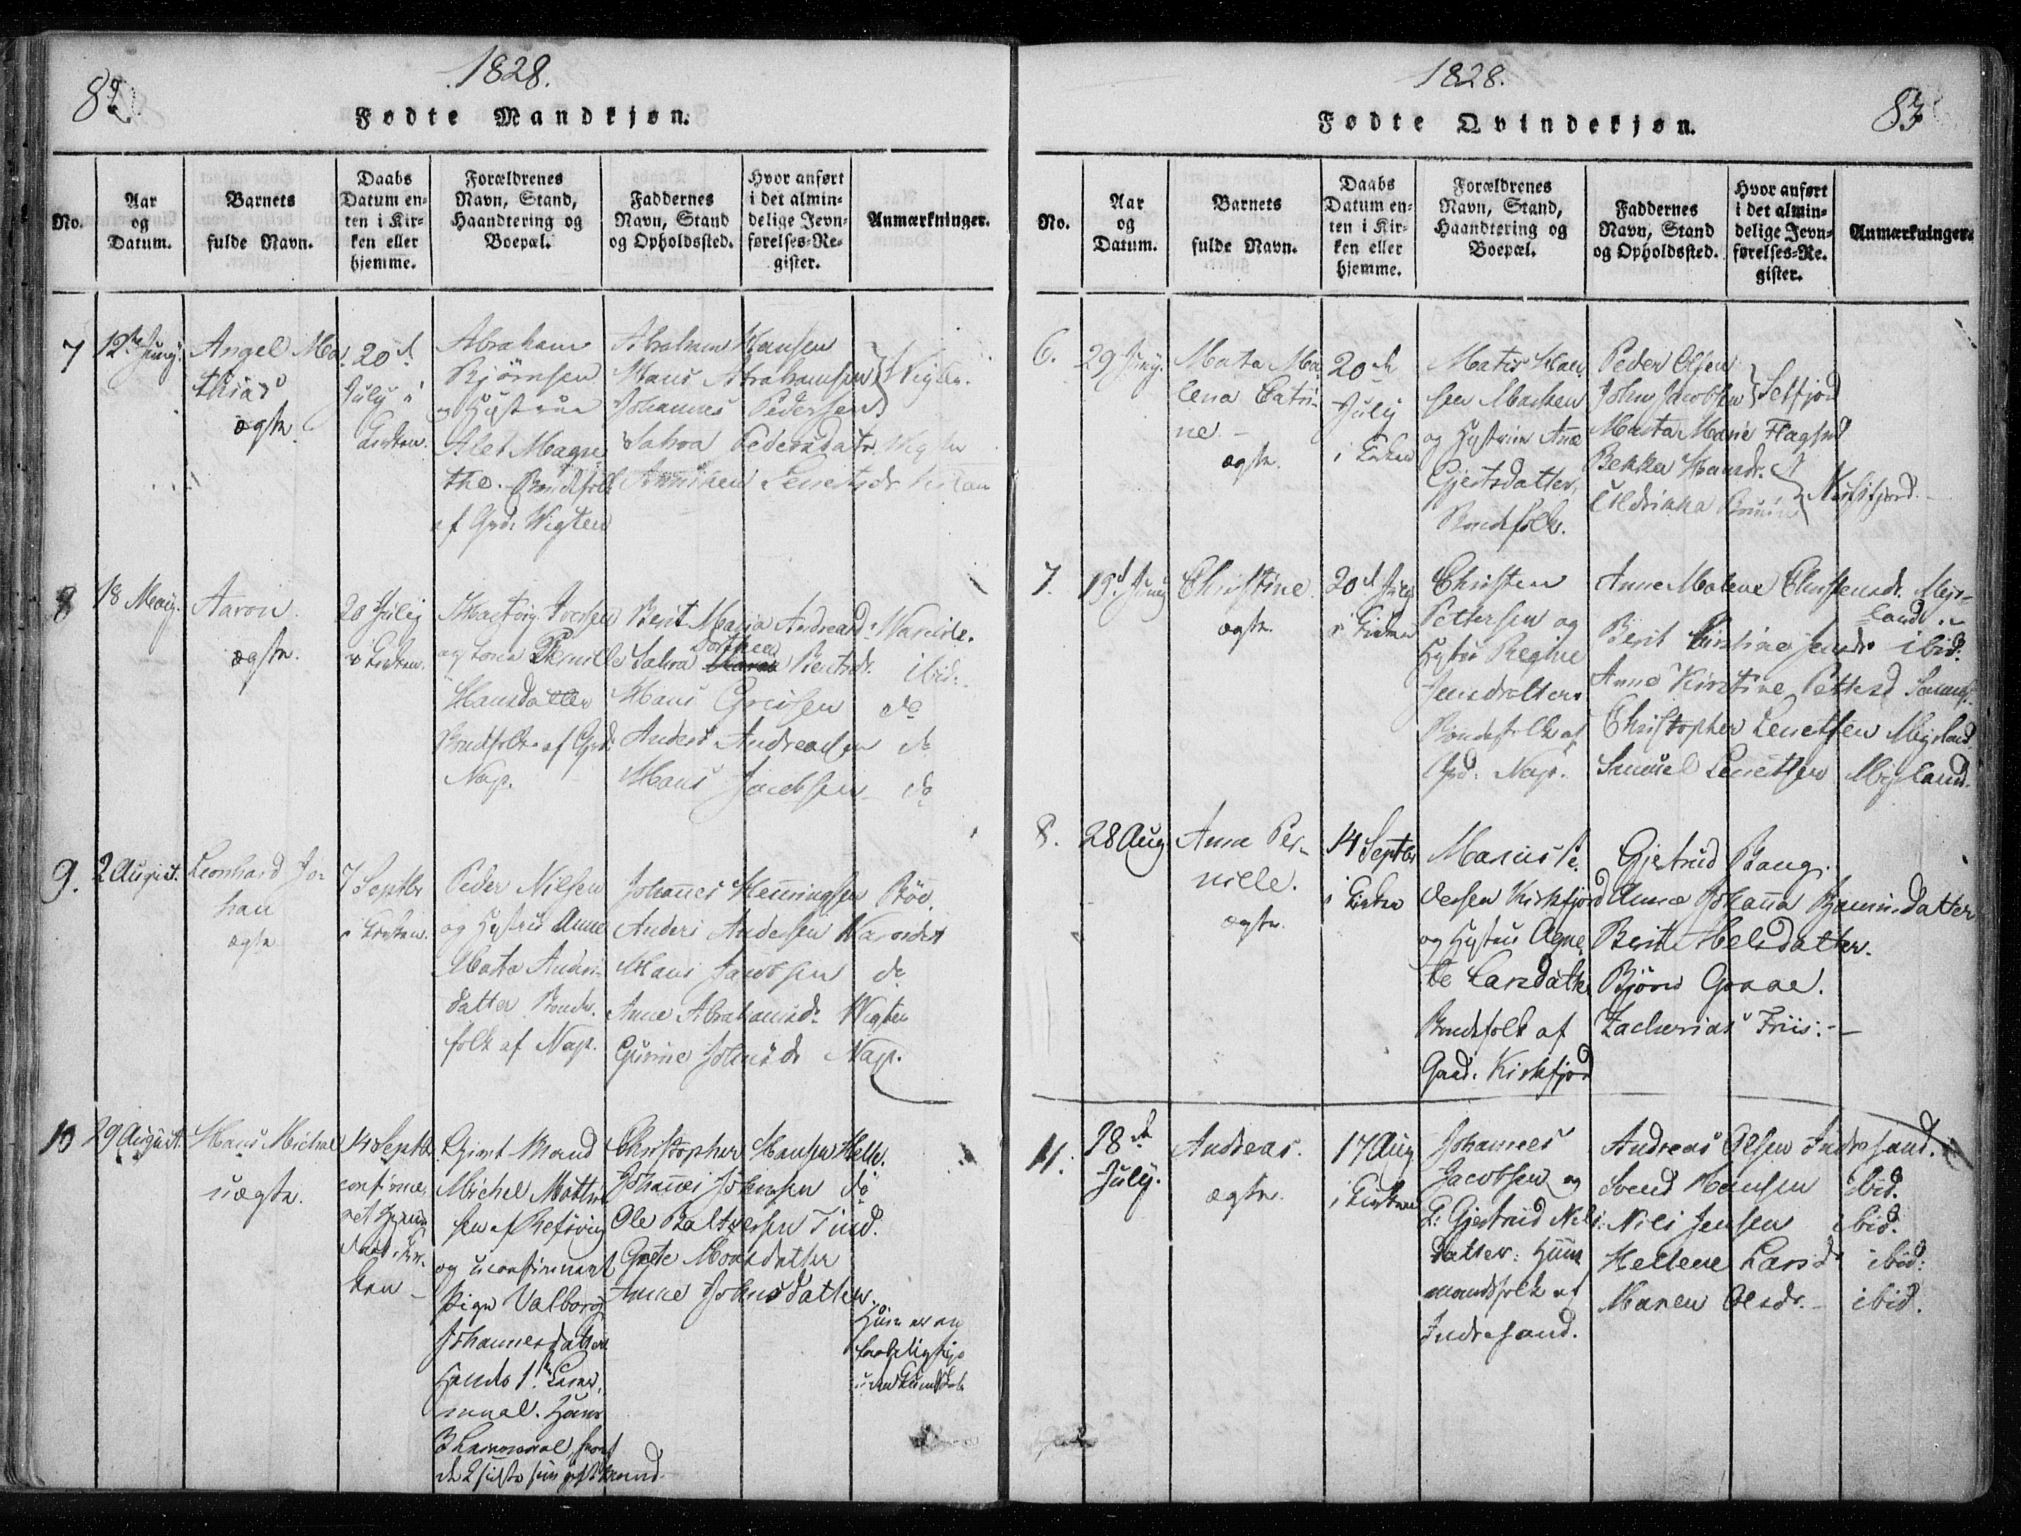 82
1828.
Fødte Mandkjøn.
No.
Aar
og
Datum.
Barnets
fulde Navn.
Daabs
Datum en-
ten i Kir-
ken eller
hjemme.
Forældrenes
Navn, Stand,
Haandtering og
Boepæl.
Faddernes
Navn, Stand
og Opholdssted.
Hvor anført
i det almin-
delige Jevn-
førelses-Re-
gister.
Anmærkninger.
7
12te Juny.
Angel Ma
thias
ægte
20d
July i
Kirken.
Abraham
Bjørnsen
og Hustrue
Alet Magre
the. Bondfolk
af Grd: Wigten
Abraham Hansen
Hans Abrahamsen
Johannes Pedersen
Wigten.
Salva Pedersdatr. Wigten
Lenertsdr
8
18 May.
Aaron.
ægte.
20 July
i Kirken.
Iversen
og Kone Pernille
Hansdatter
Bondfolk af Grd:
Nap.
Berit Maria Andreasd: Warside.
Dorthea
Salva Bentsdr. ibid:
Hans Greisen do
Anders Andreasen do
Hans Jacobsen do
9.
2 August.
Leonhard Jo-
han
ægte
7 Septbr
i Kirken.
Peder Nilsen
og Hustrue Anne
Marta Anders-
datter Bonde-
folk af Nap.
Johannes Henningsen Bøe.
Anders Andersen Warsidet
Hans Jacobsen do
Anne Abrahamsd: Wigten
Gurine Johnsdr Nap.
10
29 August.
Hans Michal
uægte.
14 Septbr
confirme
ret hjem
døbt. Kir-
ken
Givt Mand
Michel Mathi
sen af Refsvig
og uconfirmert
Pige Valborg
Johannesdatter
Hendes 1te Leier-
maal. Hans
3 Leiermaal, hvoraf
de 2 sidste som gift Mand.
Christopher Hansen Helle.
Johannes Johnsen do
Ole Baltzersen Tind.
Grete Monsdatter
Anne Johnsdatter.
Hun er en
83
1828.
Fødte Qvindekjøn.
No.
Aar
og
Datum.
Barnets
fulde Navn.
Daabs
Datum en-
ten i Kir-
ken eller
hjemme.
Forældrenes
Navn, Stand,
Haandtering og
Boepæl.
Faddernes
Navn, Stand
og Opholdssted.
Hvor anført
i det almin-
delige Jevn-
førelses-Re-
gister.
Anmærkninger.
6.
29 Juny.
Marta Ma
lena Catri-
ne.
ægte.
20de
July
i Kirken
Matis Han
sen Marken
og Hustrue Ane
Gjertsdatter,
Bondefolk.
Peder Olsen
John Jacobsen
Selfjord
Marta Marie Flagsted
Bekka Hansdr.
Uldrikka
Kirkfjord.
7.
19d Juny
Christine
ægte.
20d July
i Kirken
Christen
Pettersen og
Hustrue Regine
Jensdatter.
Bondefolk af
Grd: Nap.
Anne Malene Christensdr. Myr-
land.
Berit Kirstine Jensdr ibid.
Anne Kirstine Pettersd
Christopher Lenertsen Myrland
Samuel Lenertsen Myrland.
8.
28 Aug
Anna Per-
nille.
ægte.
14 Septbr
i Kirken
Marius Pe
dersen Kirkfjord
og Hustrue Agne
te Larsdatter
Bondefolk af
Gaard. Kirkfjord
Gjertrud Bang.
Anna Johanna Benjaminsdatter
Berit Nelsdatter.
Bjørn Graae.
Zacherias Friis.
11.
28de
July.
Andreas.
ægte.
17 Aug
i Kirken
Johannes
Jacobsen og
H: Gjertrud Nils
datter: Huus
mandsfolk af
Indresand.
Andreas Olsen Indresand.
Svend Hansen ibid.
Nils Jensen ibid.
Hellene Larsdr ibid:
Maren Olsdr. ibid.